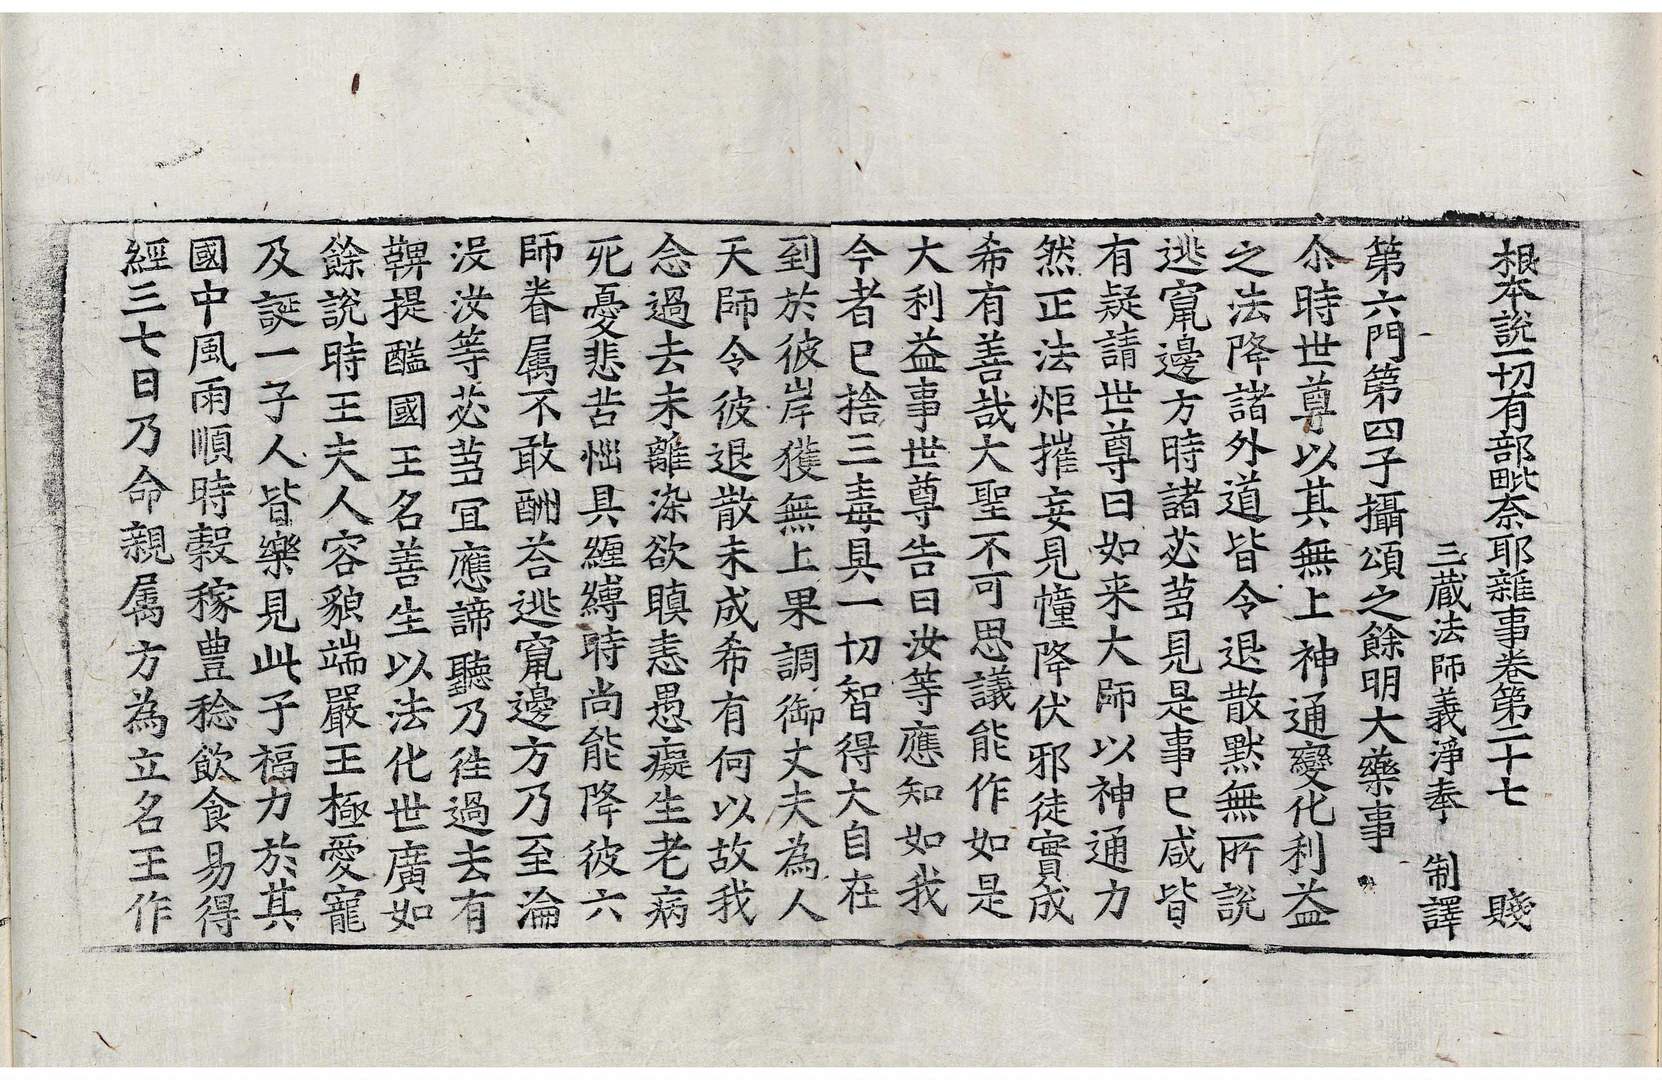 根本說一切有部毗奈耶雜事卷第二十七 賤
三蔵法師義淨奉 制譯
第六門第四子攝頌之餘明大藥事
尒時世尊以其無上神通變化利益
之法降諸外道皆令退散黙無所説
逃竄邊方時諸苾芻見是事已咸皆
有疑請世尊曰如来大師以神通力
然正法炬摧妄見幢降伏邪徒實成
希有善哉大聖不可思議能作如是
大利益事世尊告曰汝等應知如我
今者已捨三毒具一切智得大自在
到於彼岸獲無上果調御丈夫為人
天師令彼退散未成希有何以故我
念過去未離染欲瞋恚愚癡生老病
死憂悲苦惱具纏縛時尚能降彼六
師眷属不敢酬荅逃竄邊方乃至淪
没汝等苾芻冝應諦聽乃往過去有
鞞提醯國王名善生以法化世廣如
餘説時王夫人容貌端嚴王極愛寵
及誕一子人皆樂見此子福力於其
國中風雨順時穀稼豊稔飲食易得
經三七日乃命親属方為立名王作